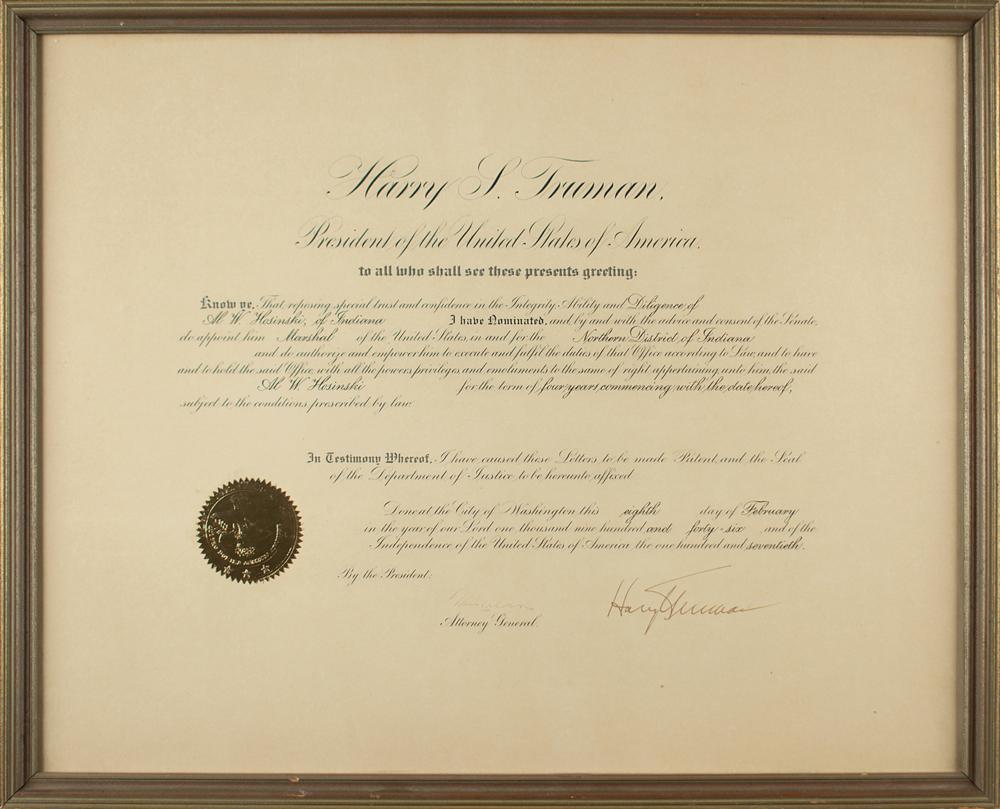 Harry S. Truman,
President of the United States of America.
to all who shall see these presents greeting:
Know ye, That reposing special trust and confidence in the Integrity, Ability and Diligence of
Al W. Hosinski, of Indiana I have Nominated, and, by and with the advice and consent of the Senate,
do appoint him Marshal of the United States, in and for the Northern District of Indiana
and do authorize and empower him to execute and fulfil the duties of that Office according to Law, and to have
and to hold the said Office, with all the powers, privileges, and emoluments to the same of right appertaining, unto him, the said
Al W. Hosinski for the term of four years, commencing with the date hereof,
subject to the conditions prescribed by law.
In Testimony Whereof, I have caused these Letters to be made Patent, and the Seal
of the Department of Justice to be hereunto affixed
Done at the City of Washington this eighth day of February
in the year of our Lord one thousand nine hundred and forty-six, and of the
Independence of the United States of America the one hundred and seventieth.
By the President:
Harry S Truman
Attorney General.